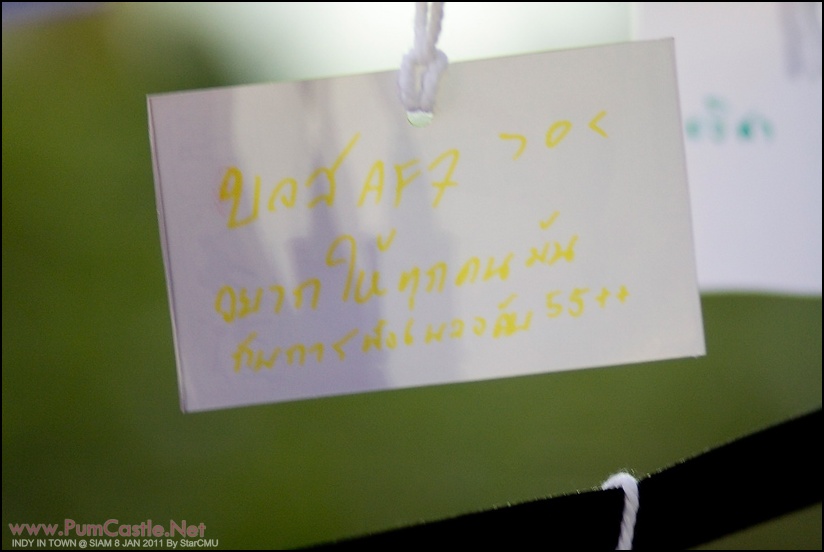 บอส AF7 >o<
อยากให้ทุกคนมัน
กับการฟังเพลงคับ 55++
www.PumCastle.Net
INDY IN TOWN @ SIAM 8 JAN 2011 By StarCMU